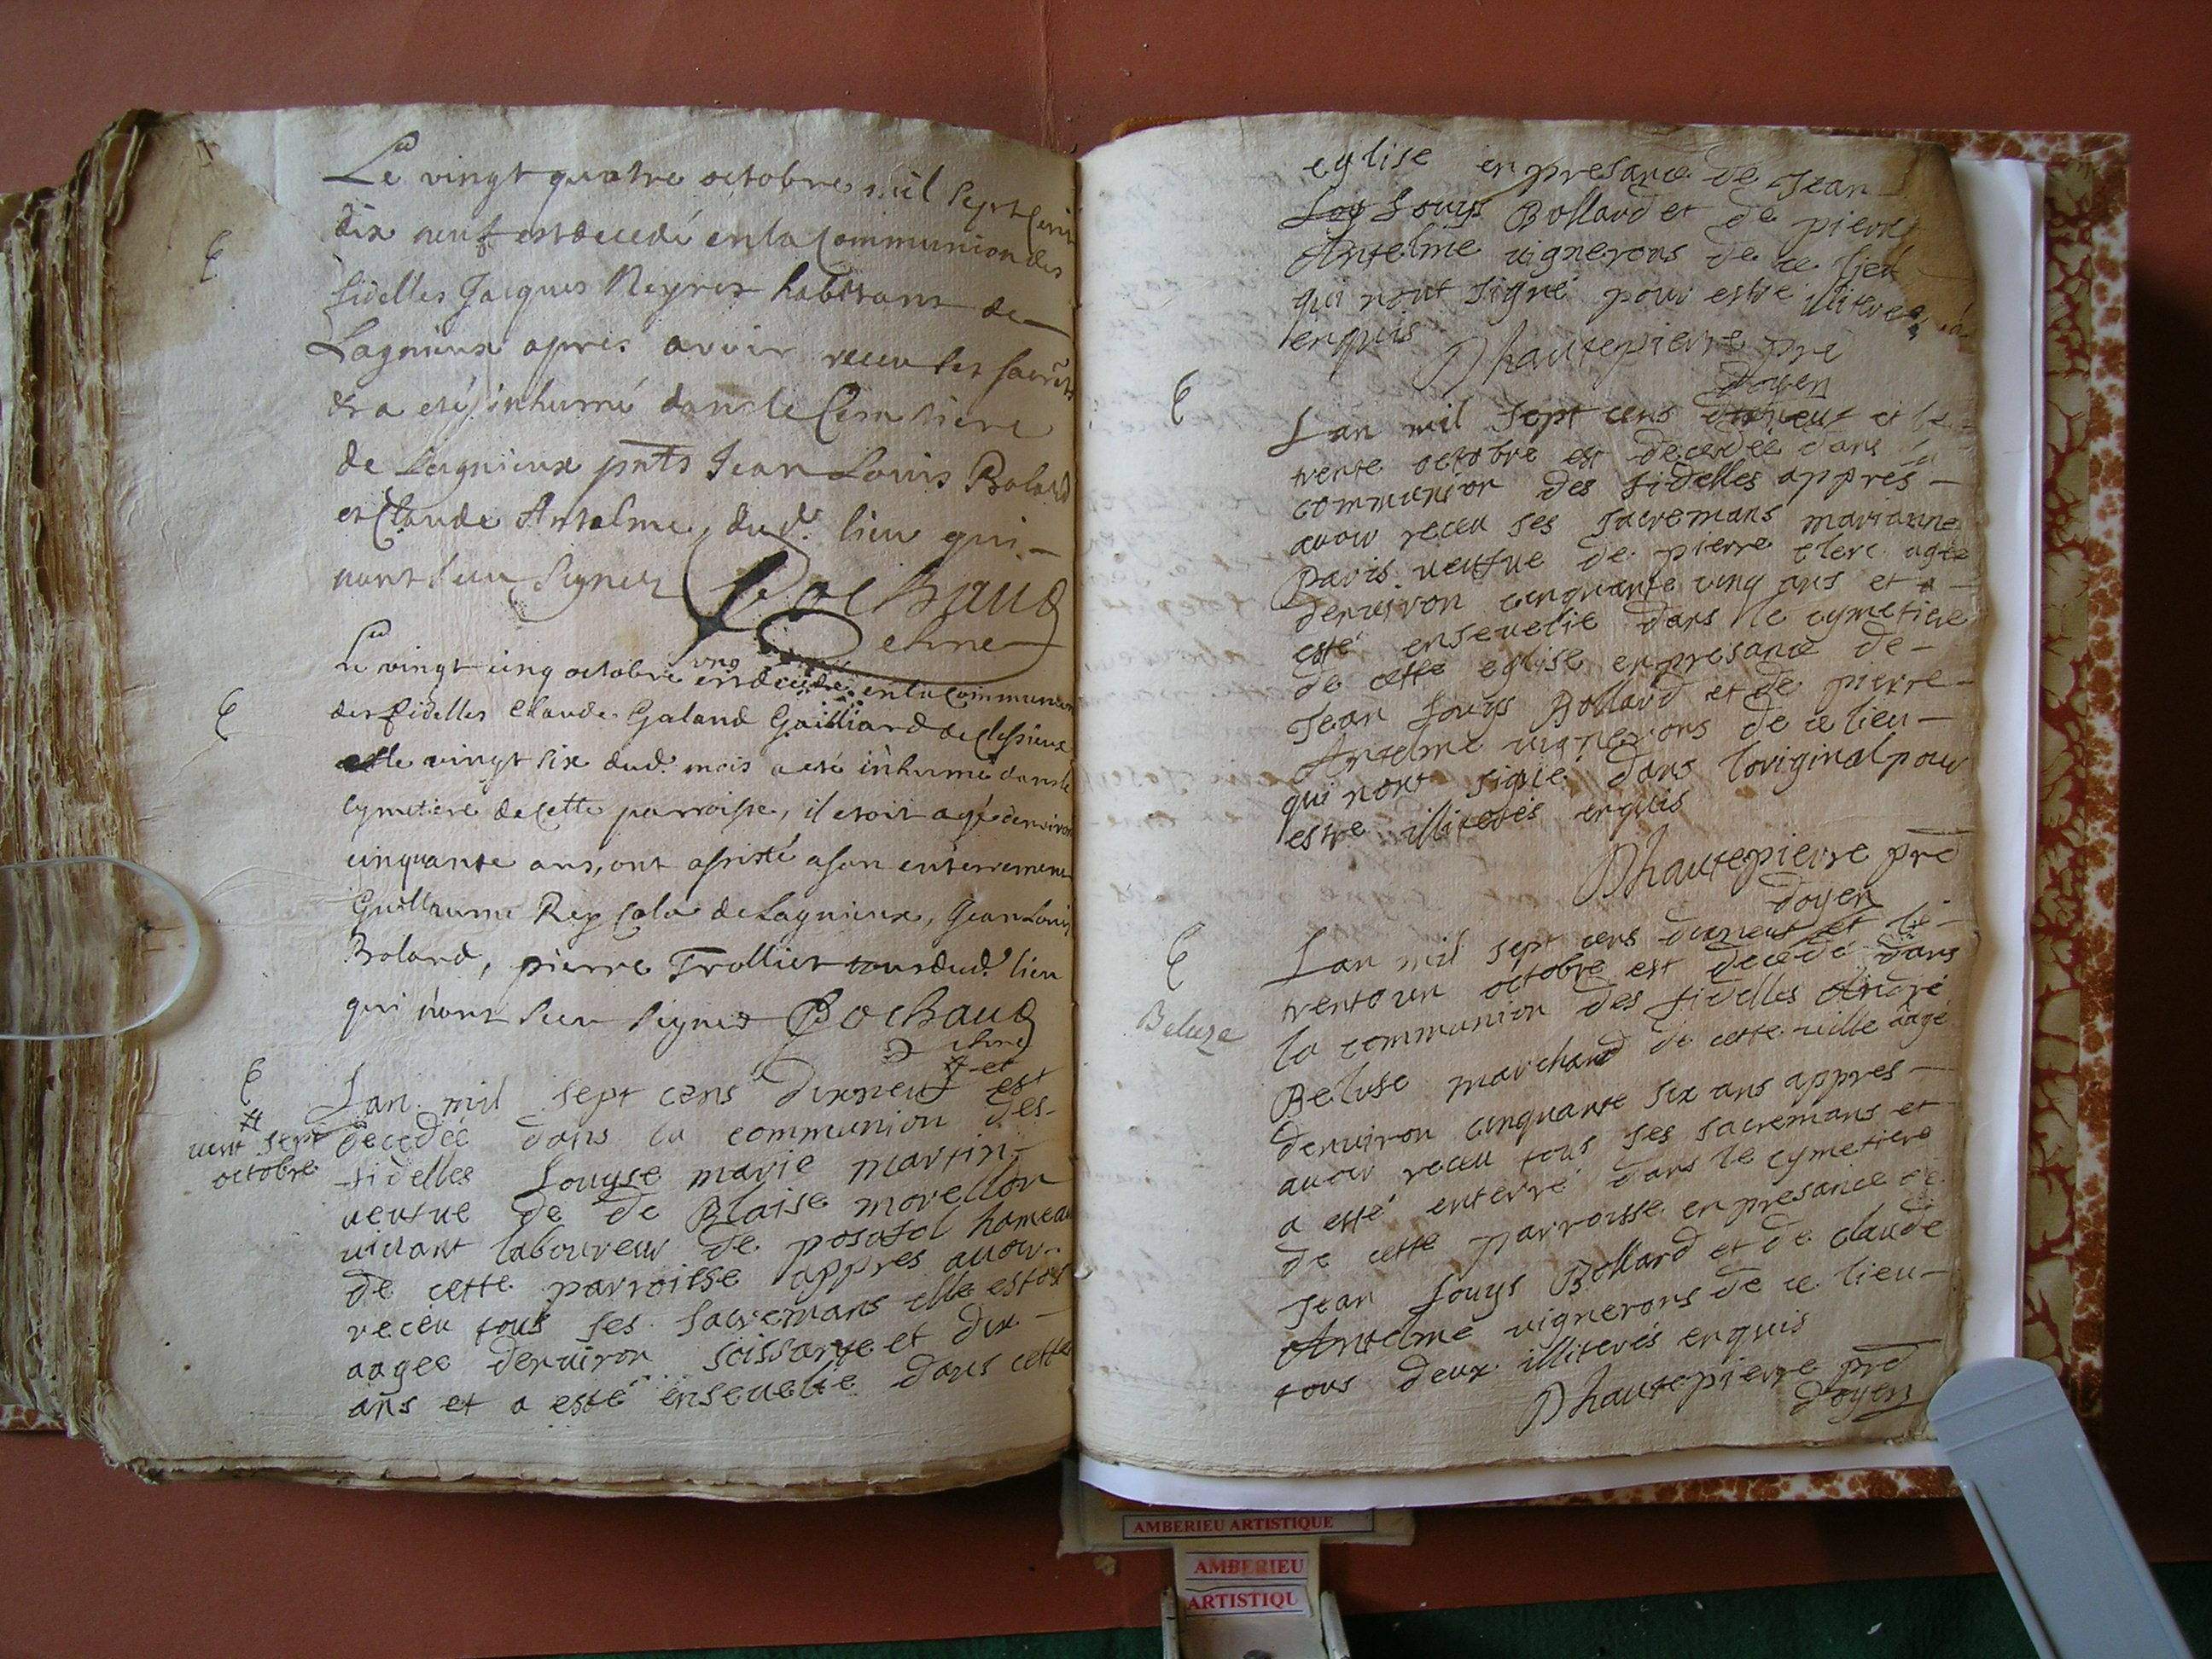 Le vingt quatre octobre mil sept cent
dix neuf est decedé en la Communion des
fidelles Jacques Reyret habitant de
Lagnieux apres avoir receu les sacrēts
& a eté inhumé dans le Cemetiere
de Lagnieux pnts Jean Louis Bolard
et Claude Antelme dud. lieu qui
nont sceu signer Bochaud
Le vingt cinq octobre est decedé en la Communion
des fidelles Claude Galand Gailliard de
et le vingt six dud. mois a eté inhumé dans le
Cymetiere de Cette parroisse, il etoit agé denviron
cinquante ans, ont assisté a son enterrement
Guillaume Rey de Lagnieux, Jean Louis
Bolard, pierre Trollier tous dud. lieu
qui nont sceu signer Bochaud
E
#
vint sept
octobre
Lan mil sept cens dixneuf # et est
decedée dans la communion des
fidelles Louyse marie martin
veufue de de Blaise morellon
vivant laboureur de posafol hameau
de cette parroisse appres avoir
receu tous ses sacremans elle estoit
aagee denuiron soissante et dix
ans et a esté enseuelie dans cette
eglise en presance de Jean
Louys Bollard et de pierre
Antelme vignerons de ce lieu
qui nont signé pour estre illiteres
enquis
Dhautepierre pre
doyen
E
Lan mil sept cens dixneuf et le
trente octobre est decedée dans la
communion des fidelles appres
auoir receu ses sacremans marianne
Pavis veufue de pierre clerc agée
denuiron cinquante cinq ans et a
esté enseuelie dans le cymetiere
de cette eglise en presance de
Jean Louys Bollard et de pierre
Antelme vignerons de ce lieu
qui nont signé dans loriginal pour
estre illiterés enquis
Dhautepierre pre
doyen
E
Beluze
Lan mil sept cens dixneuf et le
trente un octobre est decedé dans
la communion des fidelles André
Beluse marchand de cette ville aagé
denuiron cinquante six ans appres
auoir receu tous ses sacremans et
a esté enterré dans le cymetiere
de cette parroisse en presance de
Jean Louys Bollard et de claude
Antelme vignerons de ce lieu
tous deux illiterés enquis
Dhautepierre pre
doyen
AMBERIEU ARTISTIQUE
AMBERIEU
ARTISTIQU